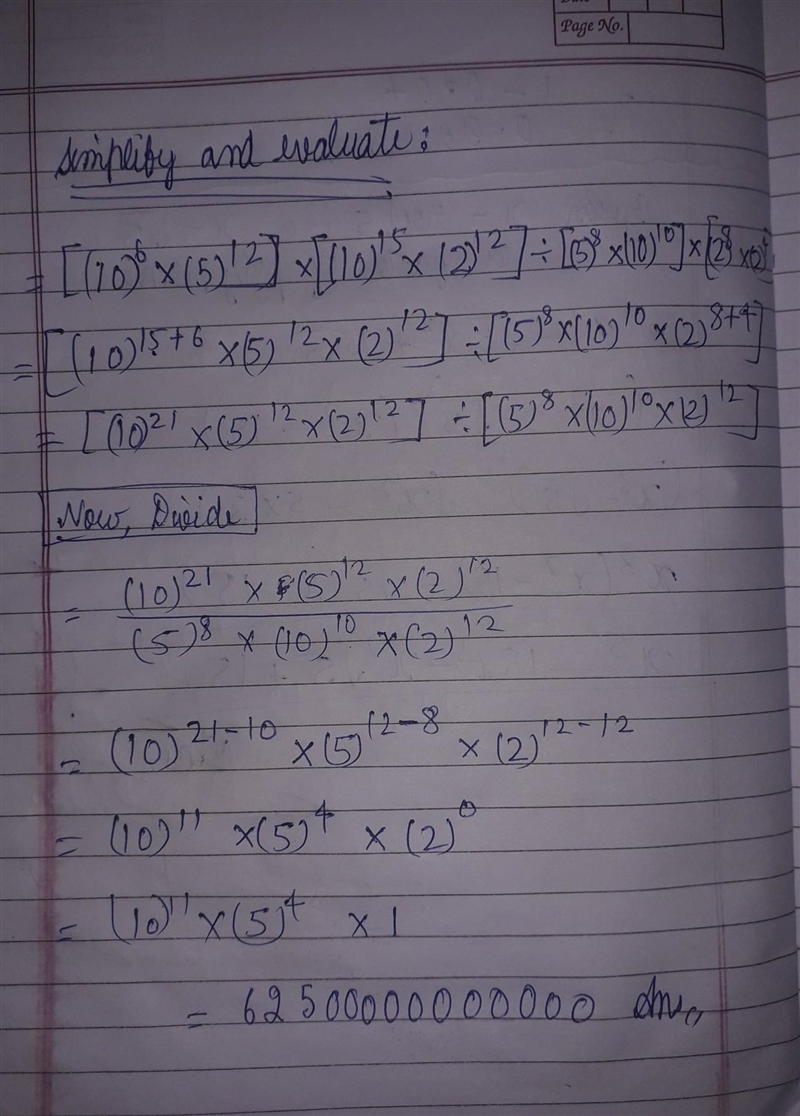 Page No.
Simplify and evaluate:
= [(10)^6 × (5)^12] × [(10)^15 × (2)^12] ÷ [(5)^8 × (10)^10] × [2^8 ×
= [(10)^15+6 × (5)^12 × (2)^12] ÷ [(5)^8 × (10)^10 × (2)^8+4]
= [(10)^21 × (5)^12 × (2)^12] ÷ [(5)^8 × (10)^10 × (2)^12]
Now, Divide
= (10)^21 × (5)^12 × (2)^12
(5)^8 × (10)^10 × (2)^12
= (10)^21-10 × (5)^12-8 × (2)^12-12
= (10)^11 × (5)^4 × (2)^0
= (10)^11 × (5)^4 × 1
= 62500000000000 Ans